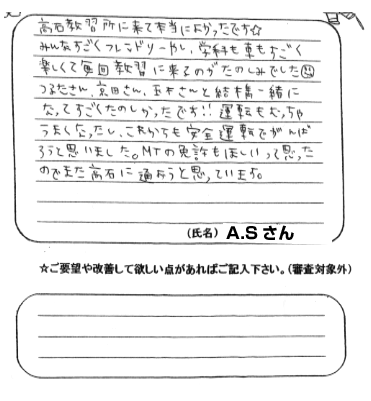 高石教習所に来て本当によかったです☆
みんなすごくフレンドリーやし、学科も車もすごく
楽しくて毎回教習に来るのがたのしみでした☺
つるたさん、京田さん、玉木さんと結構一緒に
なってすごくたのしかったです!!運転もめっちゃ
うまくなったし、これからも安全運転でがんば
ろうと思いました。MTの免許もほしいって思った
のでまた高石に通おうと思っています。
(氏名) A.Sさん
☆ご要望や改善して欲しい点があればご記入下さい。(審査対象外)